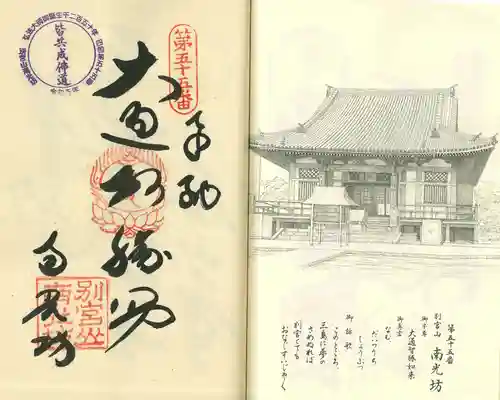 第五十五番
別宮山 南光坊
御本尊
大通智勝如来
御真言
なむ
だいつうち
しょうぶつ
御詠歌
このところ
三島に夢の
さめぬれば
別宮とても
おなじすいじゃく
第五十五番
奉納
大通智勝仏
南光坊
別宮山
南光坊
弘法大師御誕生千二百五十年
皆共成佛道